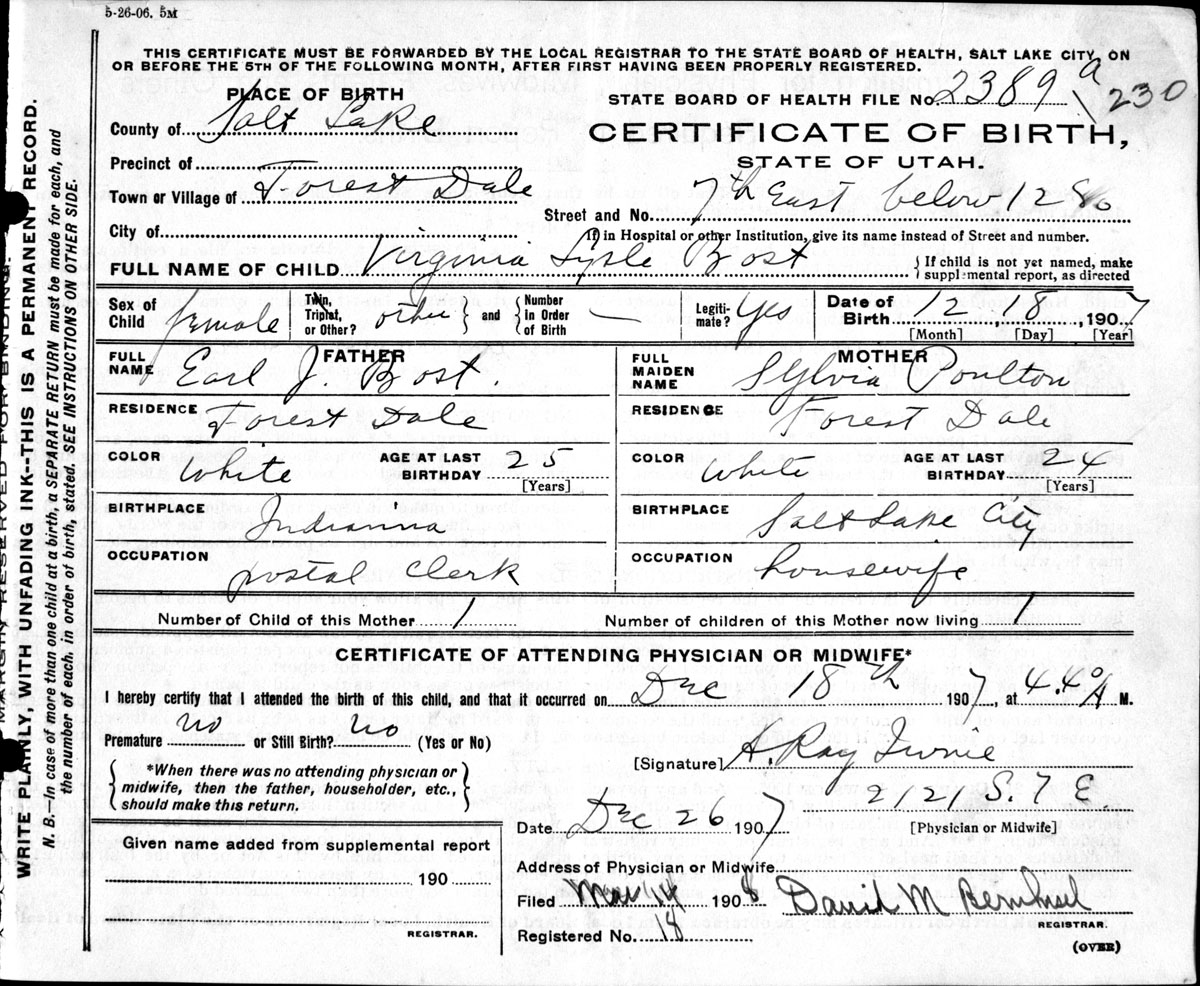 5-26-06. 5M
THIS CERTIFICATE MUST BE FORWARDED BY THE LOCAL REGISTRAR TO THE STATE BOARD OF HEALTH, SALT LAKE CITY, ON
OR BEFORE THE 5TH OF THE FOLLOWING MONTH, AFTER FIRST HAVING BEEN PROPERLY REGISTERED.
PLACE OF BIRTH
STATE BOARD OF HEALTH FILE No. 2389 a 230
County of Salt Lake
CERTIFICATE OF BIRTH,
STATE OF UTAH.
Precinct of
Town or Village of Forest Dale
Street and No. 7th East below 12 So
City of
(If in Hospital or other Institution, give its name instead of Street and number.
FULL NAME OF CHILD Virginia Lysle Bost
{ If child is not yet named, make
supplemental report, as directed
Sex of Child female
Twin, Triplet, or Other? other } and { Number in Order of Birth —
Legiti-mate? Yes
Date of Birth 12 18, 1907
[Month] [Day] [Year]
FATHER
FULL NAME Earl J. Bost.
RESIDENCE Forest Dale
COLOR White AGE AT LAST BIRTHDAY 25
[Years]
BIRTHPLACE Indianna
OCCUPATION postal clerk
MOTHER
FULL MAIDEN NAME Sylvia Poulton
RESIDENCE Forest Dale
COLOR White AGE AT LAST BIRTHDAY 24
[Years]
BIRTHPLACE Salt Lake City
OCCUPATION housewife
Number of Child of this Mother 1
Number of children of this Mother now living 1
CERTIFICATE OF ATTENDING PHYSICIAN OR MIDWIFE*
I hereby certify that I attended the birth of this child, and that it occurred on Dec 18th 1907, at 4.40 A M.
Premature no or Still Birth? No (Yes or No)
{ *When there was no attending physician or
midwife, then the father, householder, etc.,
should make this return. }
[Signature] A. Ray Irvine
2121 S. 7 E.
Date Dec 26 1907
[Physician or Midwife]
Given name added from supplemental report
190
REGISTRAR.
Address of Physician or Midwife
Filed Mar 14 1908 David M
REGISTRAR.
Registered No. 18
(OVER)
MARGIN RESERVED FOR BINDING.
WRITE PLAINLY, WITH UNFADING INK--THIS IS A PERMANENT RECORD.
N. B.—In case of more than one child at a birth, a SEPARATE RETURN must be made for each, and
the number of each, in order of birth, stated. SEE INSTRUCTIONS ON OTHER SIDE.